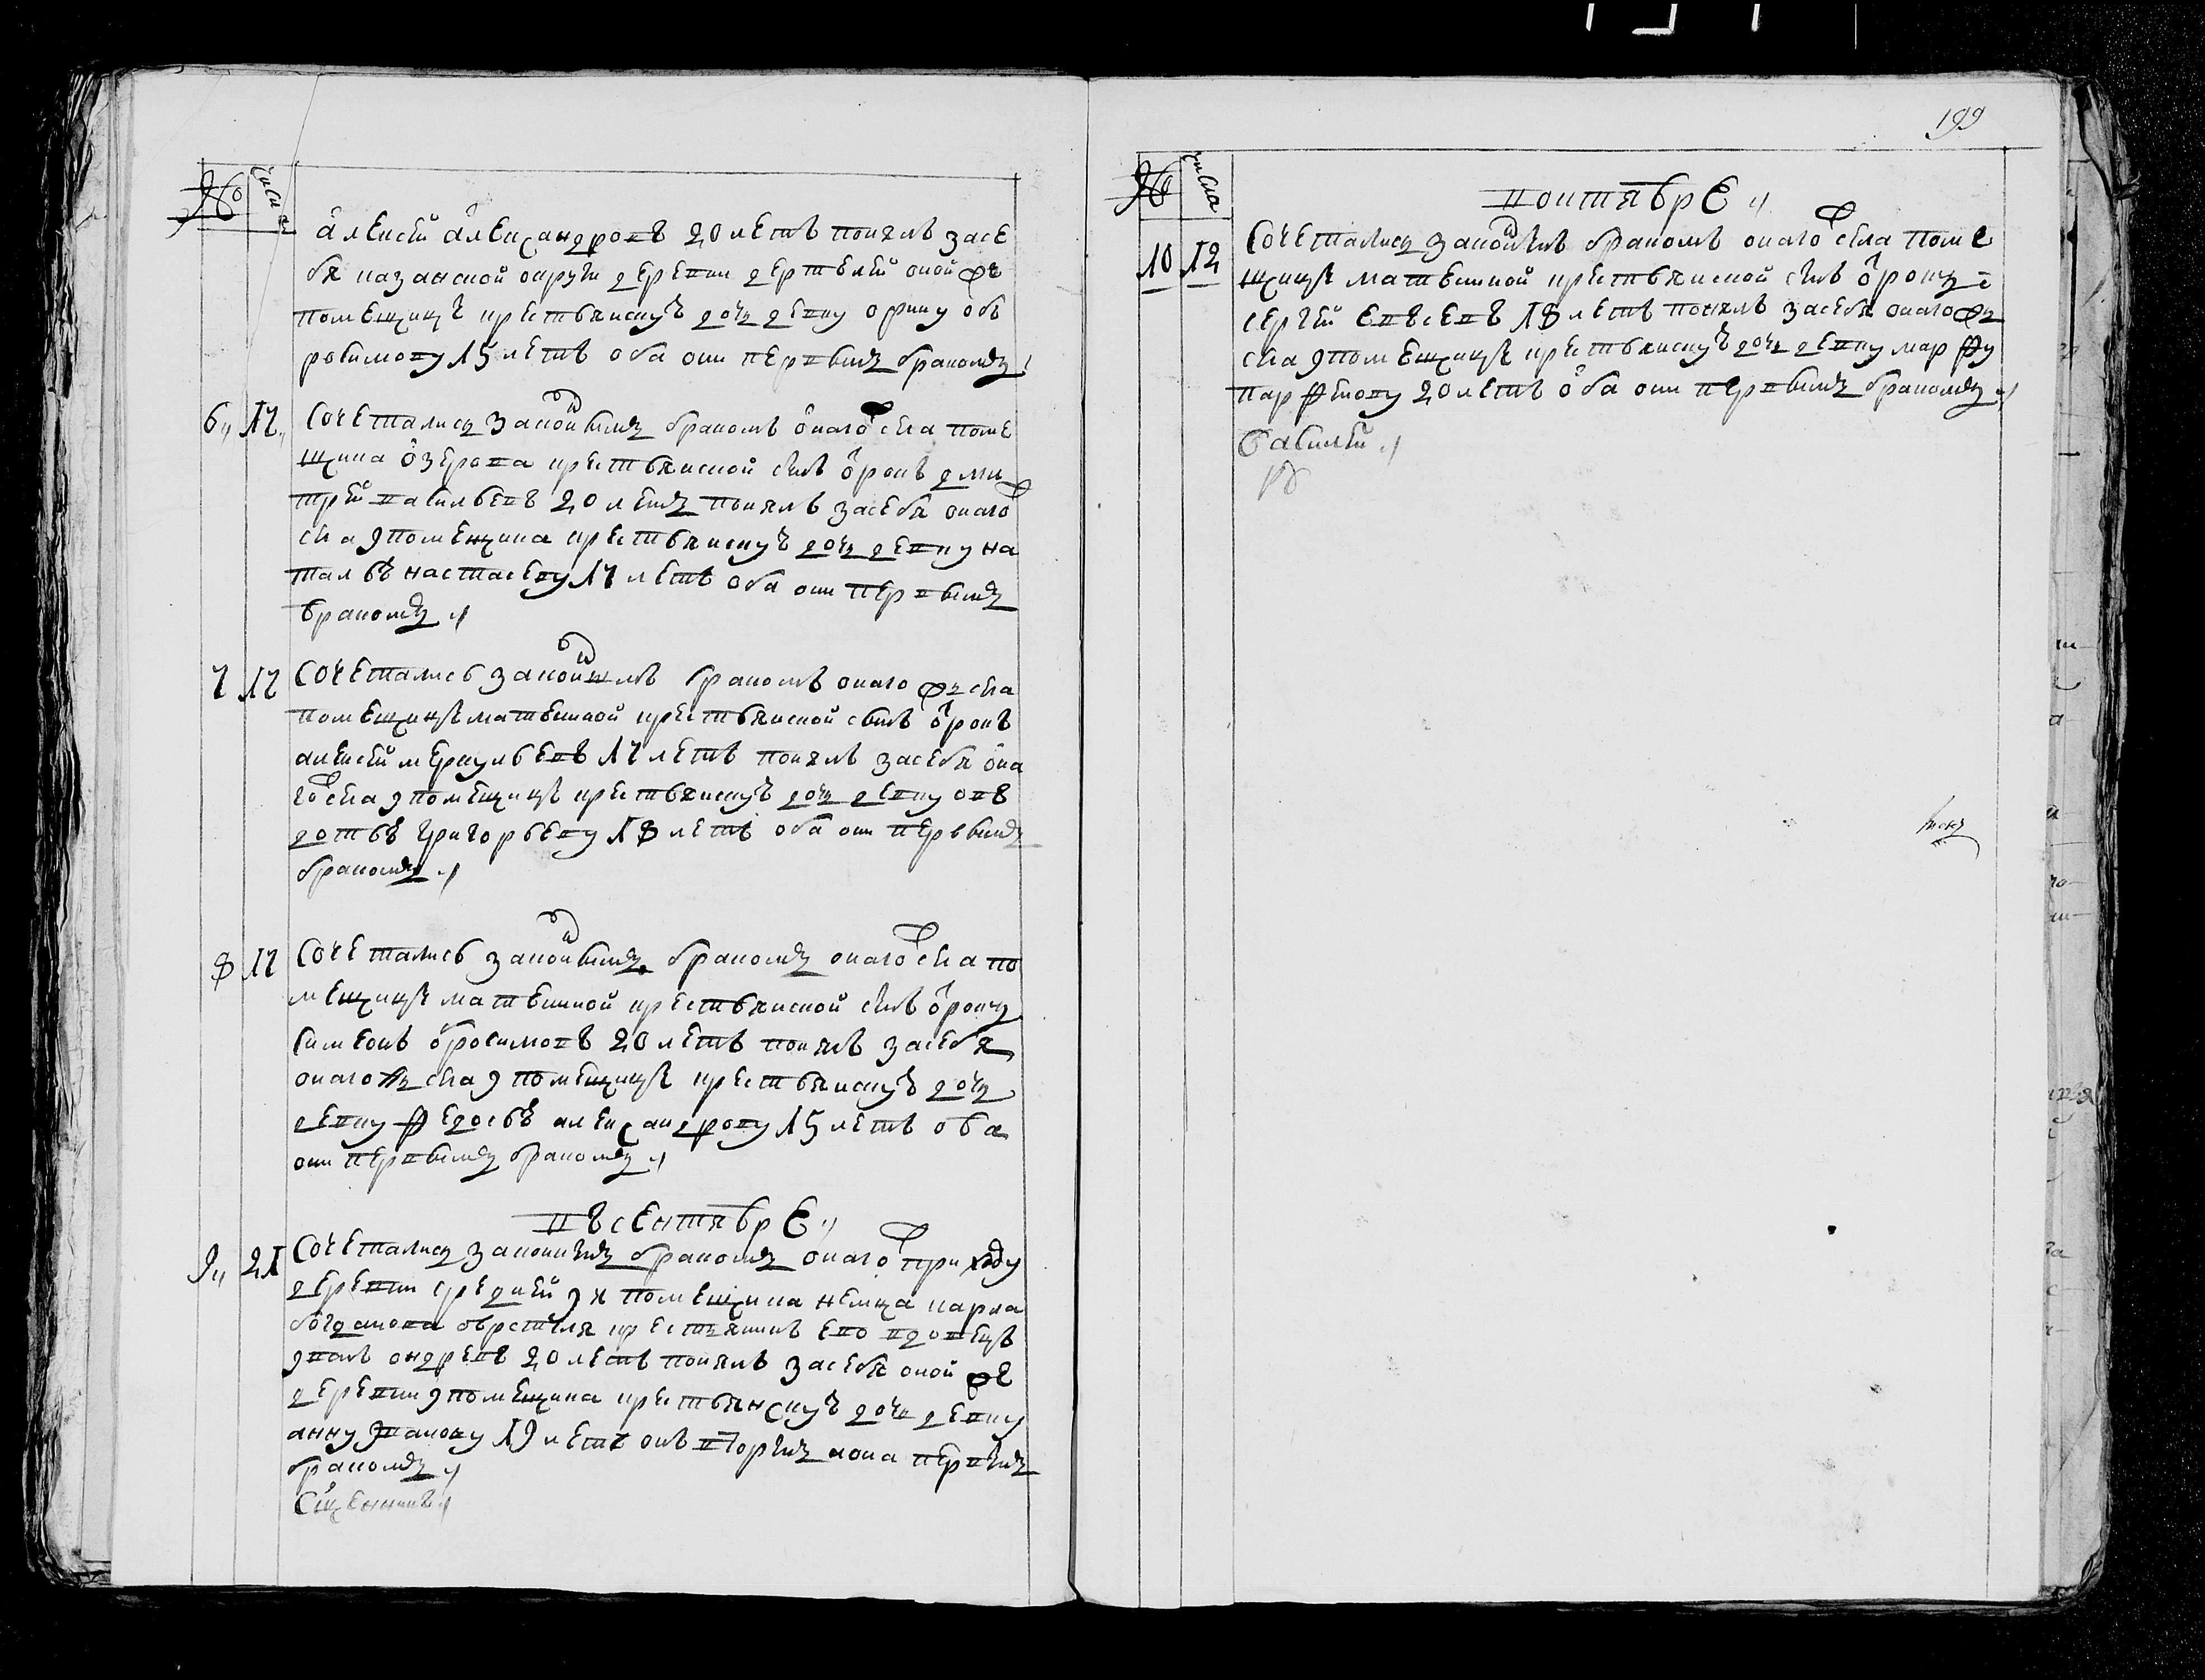 № числа
алексей александровъ 20 летъ понялъ засе
бя казанской округи деревни
помещицъ крестьянскую дочь девку орину об
росимову 15 летъ оба они первымъ бракомъ
6 17 Сочеталися законнымъ бракомъ онаго села поме
щика озерова крестьянской сынъ отрокъ дми
трей васильевъ 20 летъ понялъ засебя онаго
села помещика крестьянскую дочь девку на
талью настасеву 17 летъ оба они первымъ
бракомъ
7 17 Сочетались законнымъ бракомъ онаго села
помещицы матвенной крестьянской сынъ отрокъ
алексей меркульевъ 17 летъ понялъ засебя она
го села помещицы крестьянскую дочь девку ов
дотью григорьеву 18 летъ оба они первымъ
бракомъ
8 17 Сочетались законнымъ бракомъ онаго села по
мещицы матвенной крестьянской сынъ отрокъ
симеонъ обросимовъ 20 летъ понялъ засебя
онаго села помещицы крестьянскую дочь
девку федосью александрову 15 летъ оба
они первымъ бракомъ
Въ сентябрЕ
9 21 Сочеталися законнымъ бракомъ онаго приходу
деревни средней помещика немца карла
богданова крестьянинъ ево вдовецъ
иванъ ондревъ 20 летъ понялъ засебя оной
деревни помещика крестьянскую дочь девку
анну иванову 19 летъ онъ вторымъ иона первымъ
бракомъ
Сщенникъ
199
№ числа
В октябрЕ
10 12 Сочеталися законнымъ бракомъ онаго села поме
щицы матвенной крестьянской сынъ отрокъ
сергей евсевъ 18 летъ понялъ засебя онаго
села помещицы крестьянскую дочь девку марфу
парфенову 20 летъ оба они первымъ бракомъ
Василей